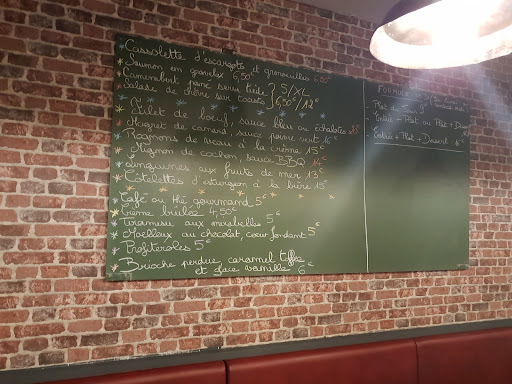 Cassolette d'escargots et grenouilles 6,50
Saumon en gravlax 6,50€
Camembert pané servi tiède ? S/XL
Salade de chèvre sur toasts 6,50€/12€
Filet de boeuf, sauce bleu ou échalotes 18€
Magret de canard, sauce poivre vert 16€
Rognons de veau à la crème 15€
Mignon de cochon, sauce BBQ 14€
Linguines aux fruits de mer 13€
Côtelettes d'esturgeon à la bière 15€
Café ou thé gourmand 5€
Crème brûlée 4,50€
Tiramisu aux mirabelles 5€
Moelleux au chocolat, coeur fondant 5€
Profiteroles 5€
Brioche perdue, caramel
et glace vanille 6€
FORMULE
Plat du jour 9€
Entrée + Plat ou Plat + Dessert
Entrée + Plat + Dessert